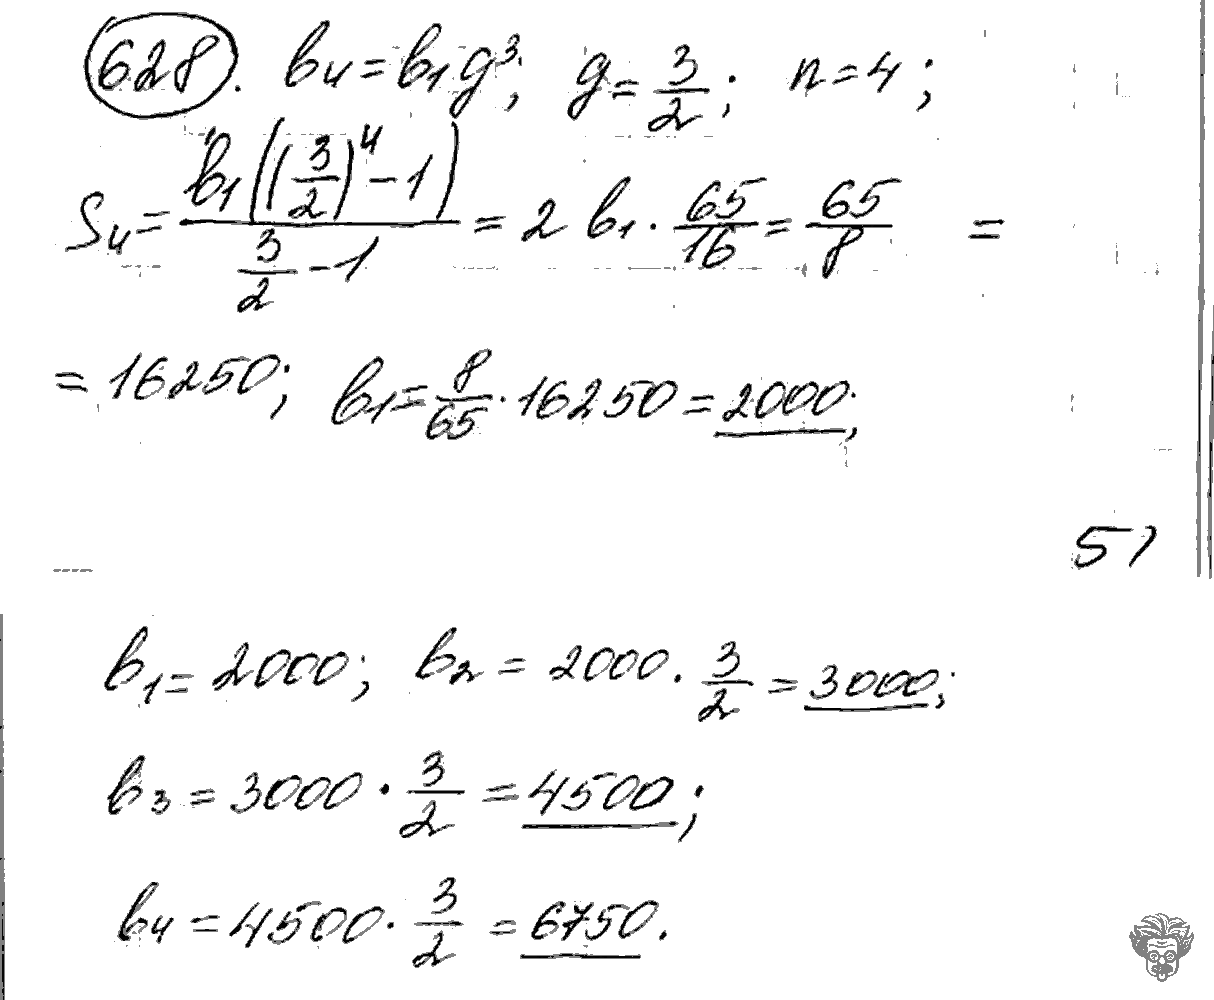 628. b₄ = b₁g³; g = 3/2; n = 4;
S₄ = b₁((3/2)⁴ - 1) / (3/2 - 1) = 2 b₁ · 65/16 = 65/8 =
= 16250; b₁ = 8/65 · 16250 = 2000;
51
b₁ = 2000; b₂ = 2000 · 3/2 = 3000;
b₃ = 3000 · 3/2 = 4500;
b₄ = 4500 · 3/2 = 6750.